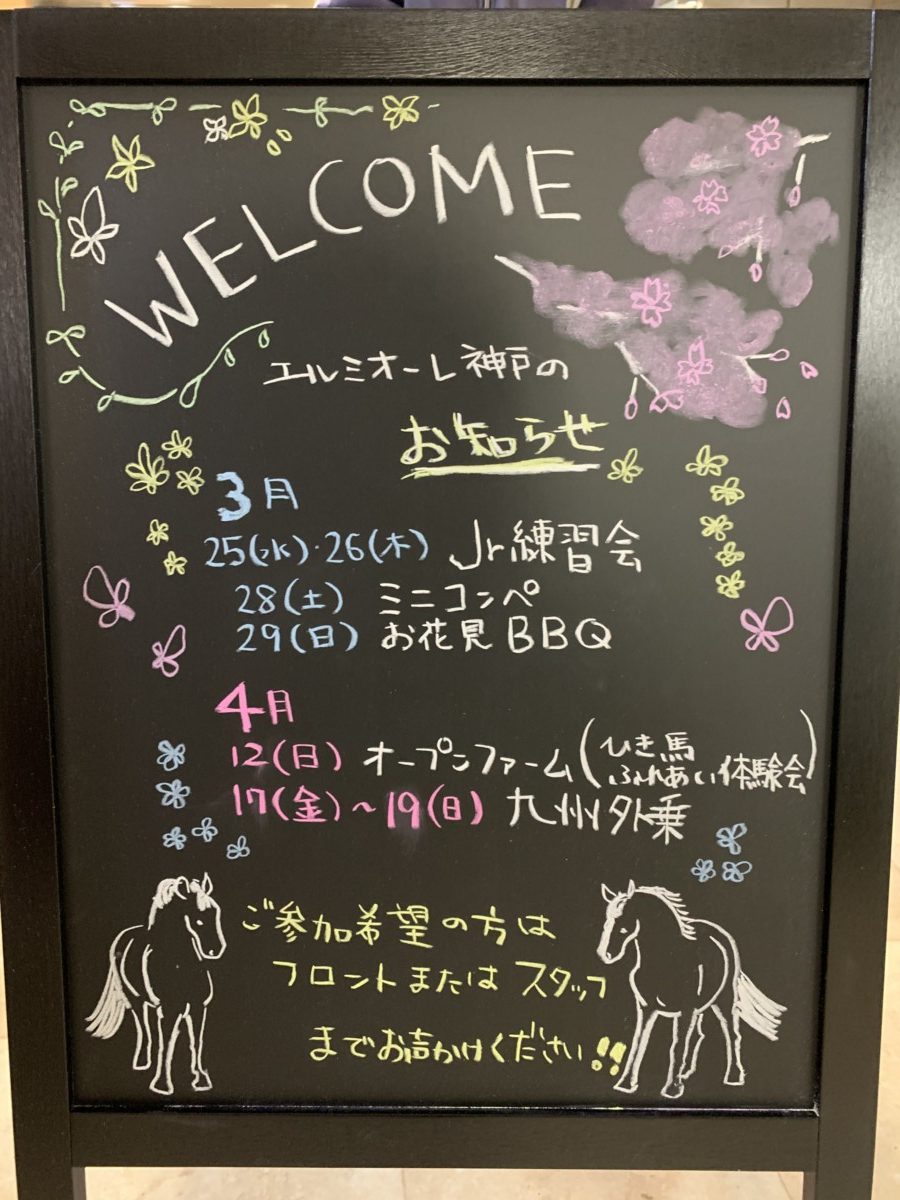 WELCOME
エルミオーレ神戸の
お知らせ
3月
25(水)・26(木) Jr練習会
28(土) ミニコンペ
29(日) お花見BBQ
4月
12(日) オープンファーム(ひき馬
ふれあい体験会)
17(金)～19(日) 九州外乗
ご参加希望の方は
フロントまたはスタッフ
までお声かけください!!